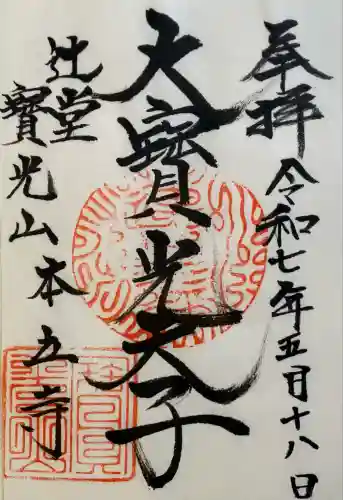 奉拝
令和七年五月十八日
大寶光天子
辻堂
寶光山本立寺